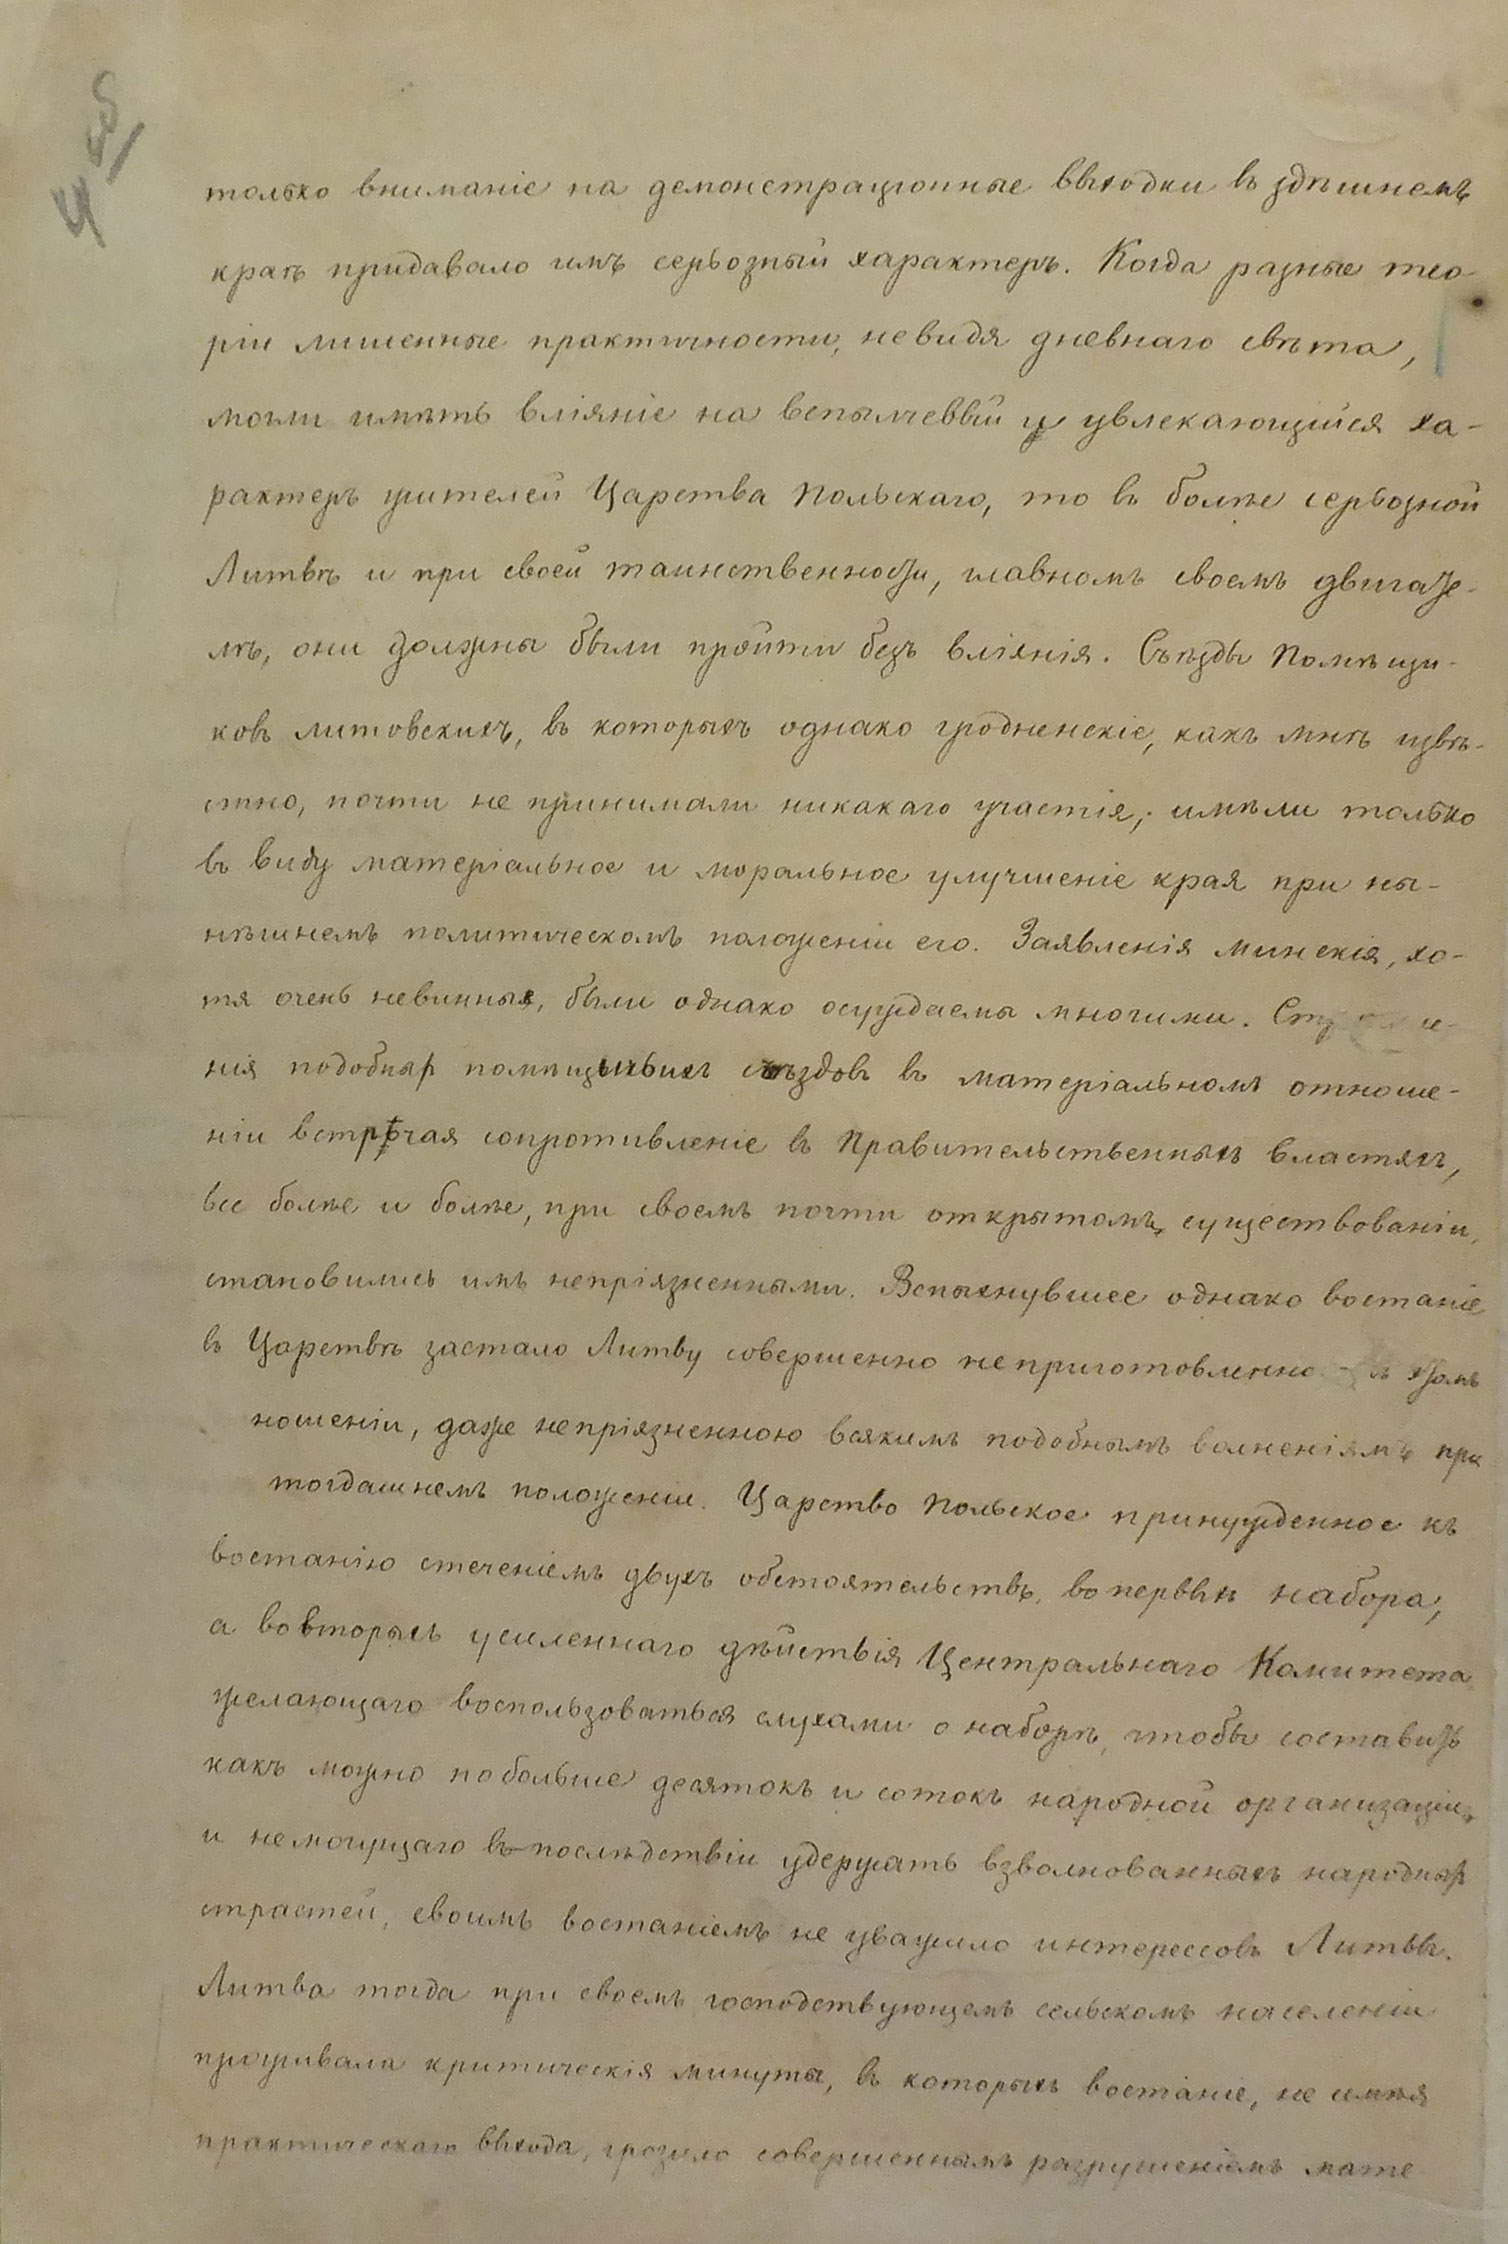 только вниманіе на демонстраціонные выходки въ здѣшнемъ
краѣ придавало имъ серьозный характеръ. Когда разные тео-
ріи лишенные практичности, невидя дневнаго свѣта,
могли имѣть вліяніе на вспылчевый и увлекающійся ха-
рактеръ жителей Царства Польскаго, то въ болѣе серьозной
Литвѣ и при своей таинственности, главномъ своемъ двигате-
лѣ, они должны были пройти безъ вліянія. Съѣзды Помѣщи-
ковъ литовскихъ, въ которыхъ однако гродненскіе, какъ мнѣ извѣ-
стно, почти не принимали никакаго участія, имѣли только
въ виду матеріальное и моральное улучшеніе края при ны-
нѣшнемъ политическомъ положеніи его. Заявленія минскія, хо-
тя очень невинныя, были однако осуждаемы многими.
нія подобныхъ помѣщичьихъ съѣздовъ въ матеріальномъ отноше-
ніи встрѣчая сопротивленіе въ Правительственныхъ властяхъ,
все болѣе и болѣе, при своемъ почти открытомъ существованіи,
становились имъ непріязненными. Вспыхнувшее однако востаніе
въ Царствѣ застало Литву совершенно
ношеніи, даже непріязненною всякимъ подобнымъ волненіямъ при
тогдашнемъ положеніи. Царство Польское принужденное къ
востанію стеченіемъ двухъ обстоятельствъ, во первыхъ набора,
а вовторыхъ усиленнаго дѣйствія Центральнаго Комитета
желающаго воспользоваться слухами о наборѣ, чтобы составить
какъ можно побольше десятокъ и сотокъ народной организаціи,
и немогущаго въ послѣдствіи удержать взволнованныхъ народныхъ
страстей, своимъ востаніемъ не уважило интерессовъ Литвы.
Литва тогда при своемъ господствующемъ сельскомъ населеніи
проживала критическія минуты, въ которыхъ востаніе, не имѣя
практическаго выхода, грозило совершеннымъ разрушеніемъ мате